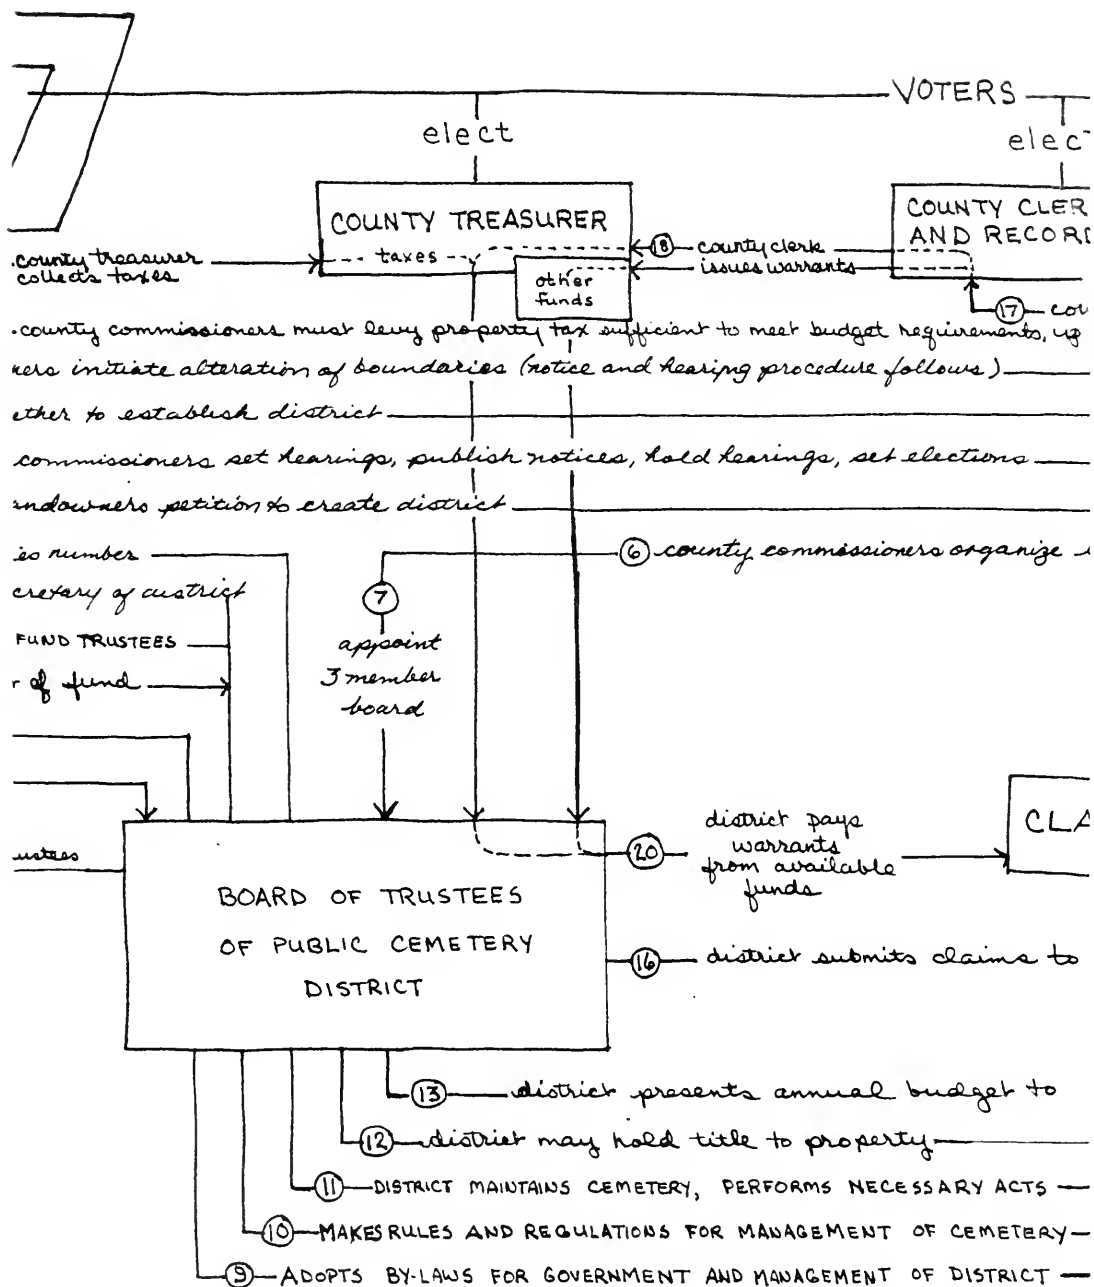 VOTERS
elect
elec
COUNTY TREASURER
COUNTY CLER
AND RECOR
.county treasurer
collects taxes
taxes
18 county clerk
issues warrants
other
funds
17 cou
.county commissioners must levy property tax sufficient to meet budget requirements, up
ners initiate alteration of boundaries (notice and hearing procedure follows)
ether to establish district
commissioners set hearings, publish notices, hold hearings, set elections
andowners petition to create district
es number
6 county commissioners organize
cretary of district
7
FUND TRUSTEES
appoint
3 member
board
r of fund
ustees
20
district pays
warrants
from available
funds
CLA
BOARD OF TRUSTEES
OF PUBLIC CEMETERY
DISTRICT
16 district submits claims to
13 district presents annual budget to
12 district may hold title to property
11 DISTRICT MAINTAINS CEMETERY, PERFORMS NECESSARY ACTS
10 MAKES RULES AND REGULATIONS FOR MANAGEMENT OF CEMETERY
9 ADOPTS BY-LAWS FOR GOVERNMENT AND MANAGEMENT OF DISTRICT